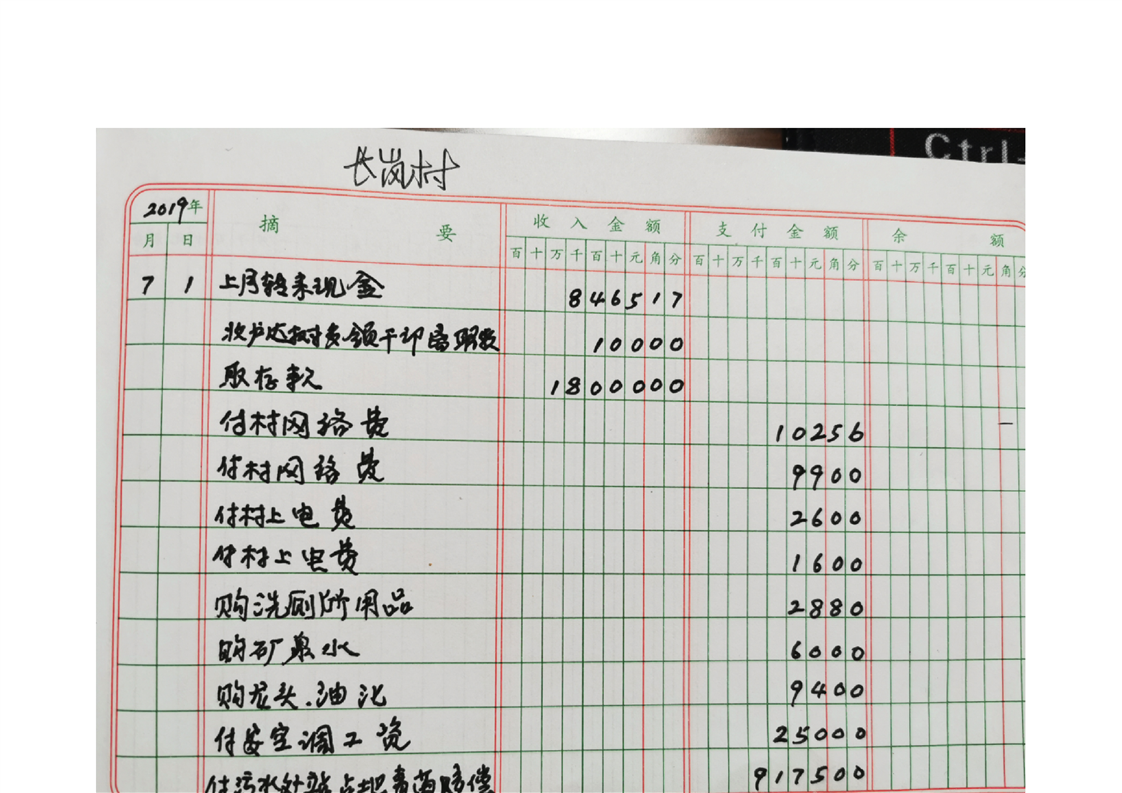 Ctrl
长岗村
2019年 摘 要 收入金额 支付金额 余 额
月 日 百十万千百十元角分 百十万千百十元角分 百十万千百十元角分
7 1 上月转来现金 846517
10000
取存款 1800000
付村网络费 10256
付村网络费 9900
付村上电费 2600
付村上电费 1600
购洗厕所用品 2880
购矿泉水 6000
购龙头.油 9400
付安空调工资 25000
付污水处站占地青苗赔偿 917500